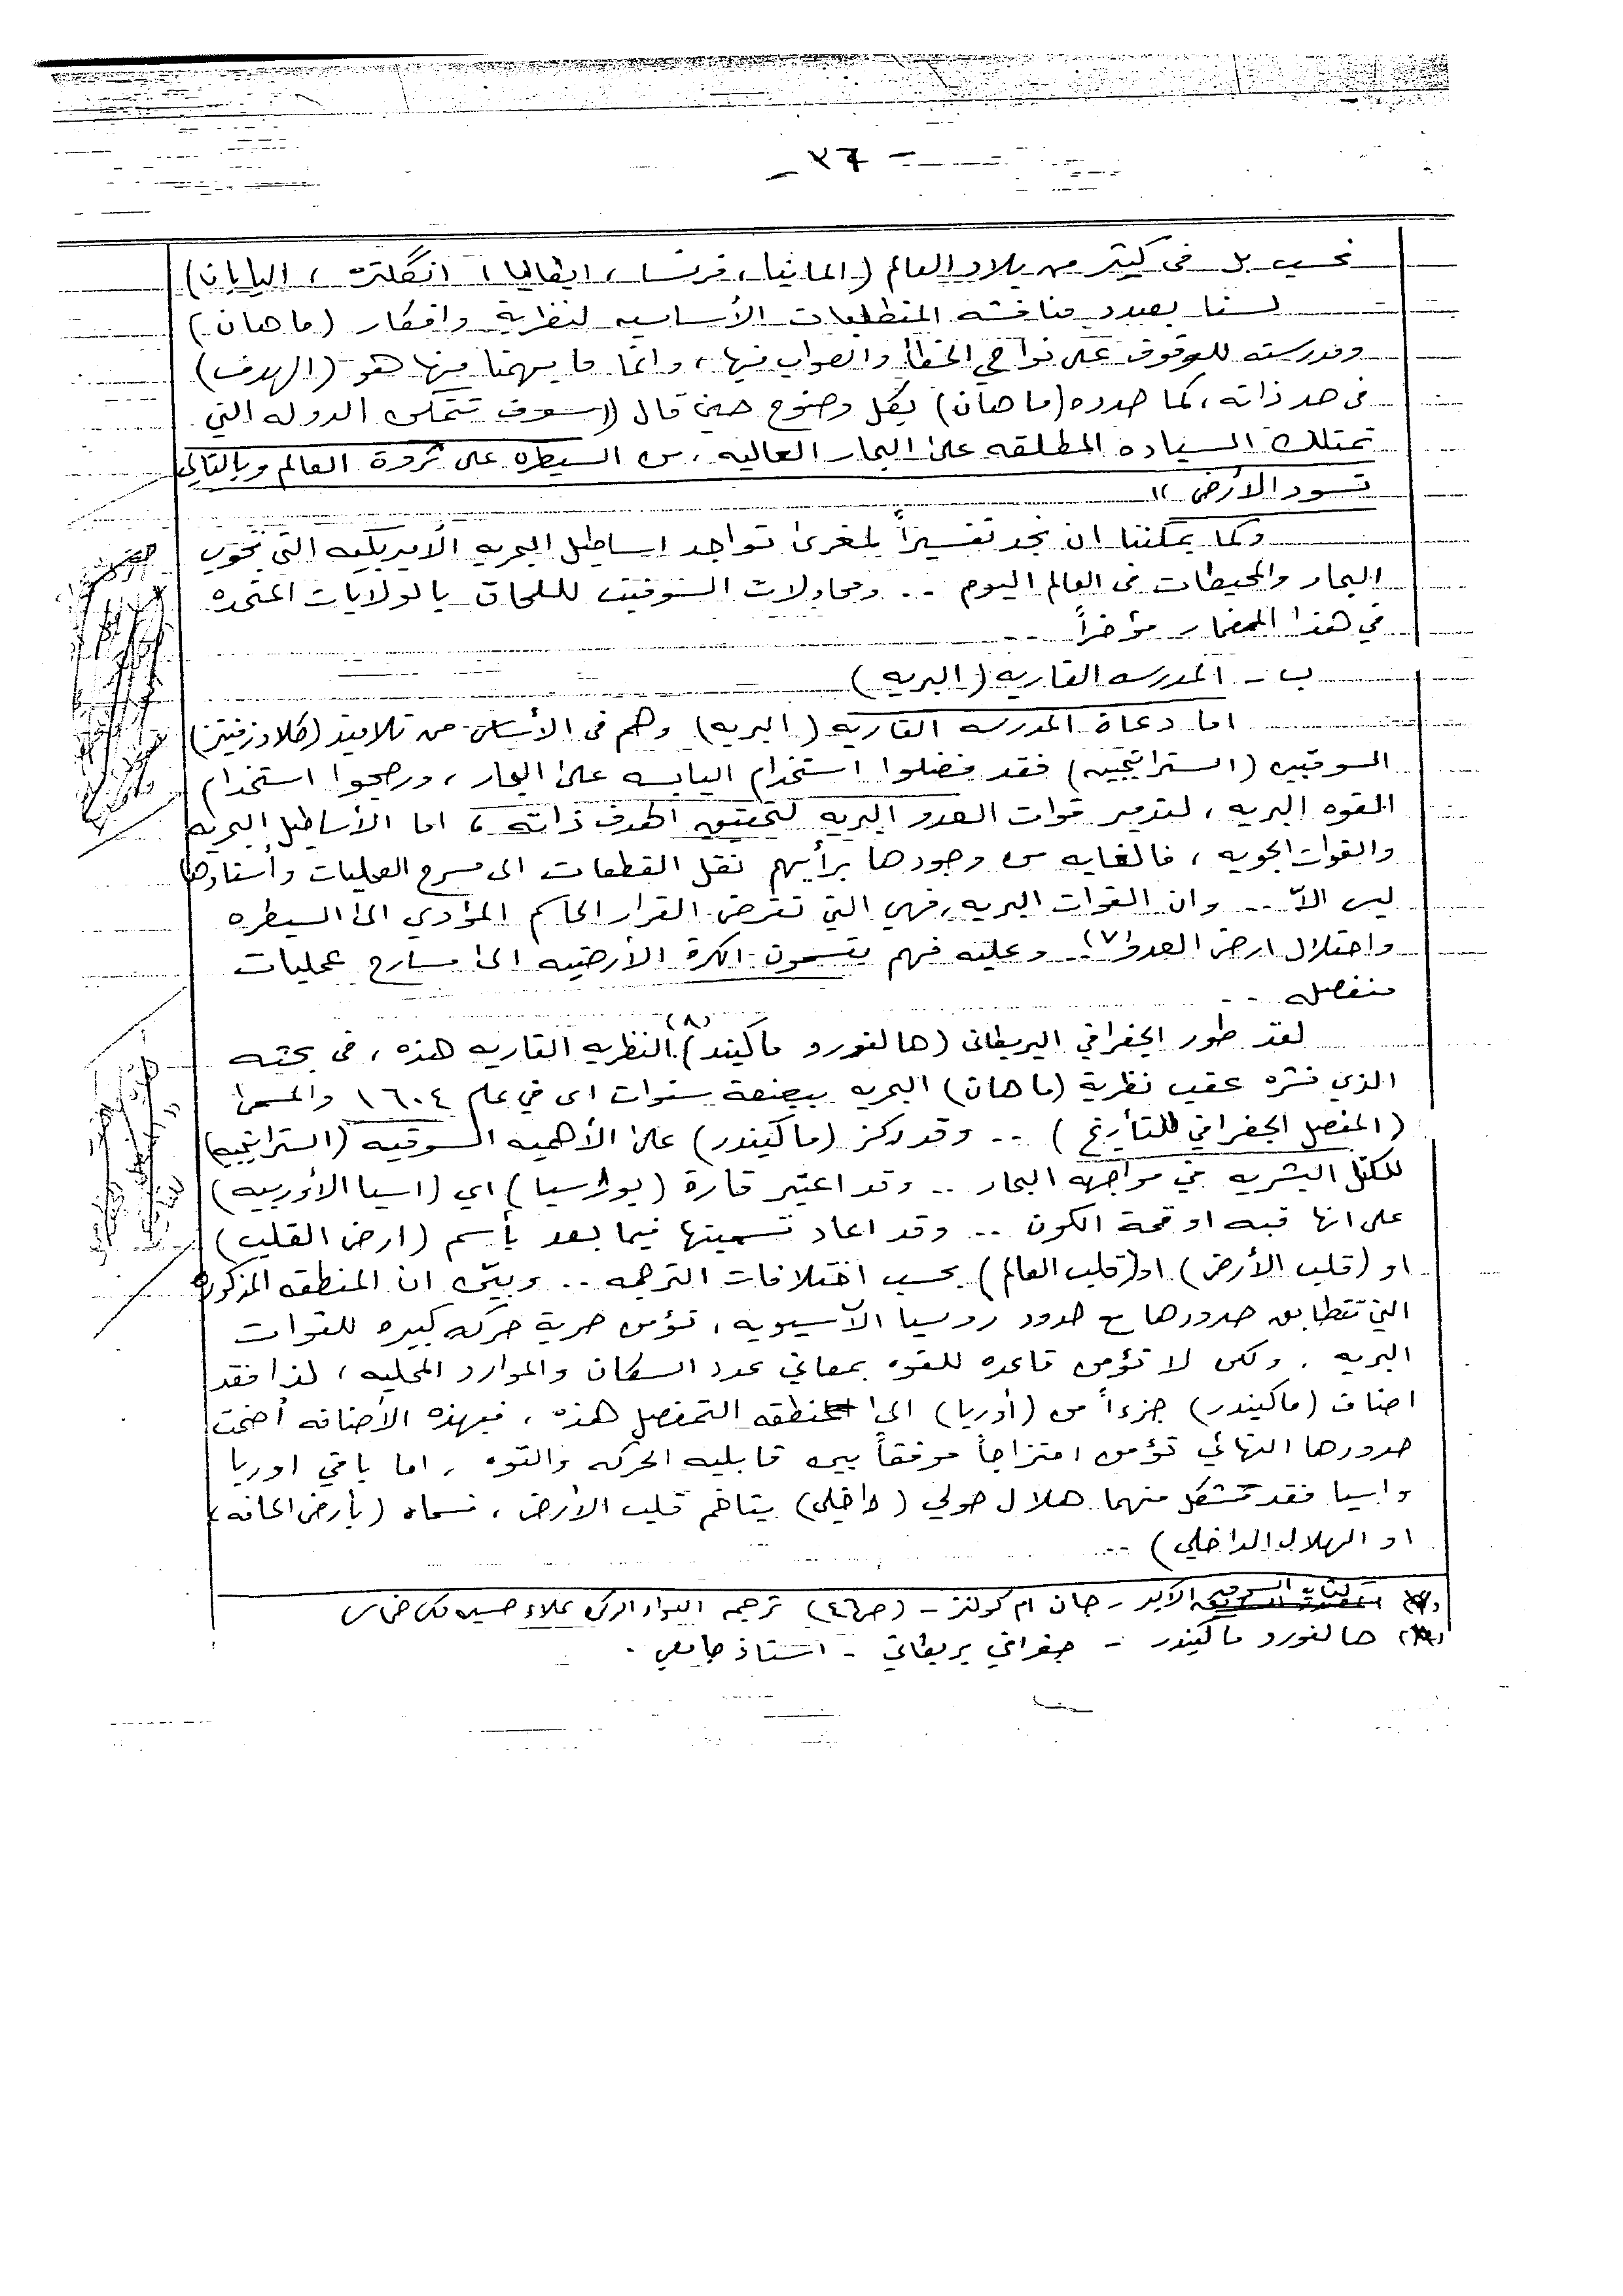 - ٣٦ -
فحسب بل في كثير من بلاد العالم (المانيا، فرنسا، ايطاليا، انگلتره، اليابان)
لسنا بصدد مناقشه المتطلبات الأساسيه لنظرية وافكار (ماهان)
ومدرسته للوقوف على نواحي الخطأ والصواب فيها، وانما ما يهمنا منها هو (الهدف)
في حد ذاته، كما حدده (ماهان) بكل وضوح حين قال ((سوف تتمكن الدوله التي
تمتلك السياده المطلقه على البحار العاليه، من السيطره على ثروة العالم وبالتالي
تسود الأرض))
وكما يمكننا ان نجد تفسيراً لمغزى تواجد اساطيل البحريه الأمريكيه التي تجوب
البحار والمحيطات في العالم اليوم .. ومحاولات السوفيت لللحاق بالولايات المتحده
في هذا المضمار مؤخراً ..
ب - المدرسه القاريه (البريه)
اما دعاة المدرسه القاريه (البريه) وهم في الأساس من تلاميذ (كلاوزفيتز)
السوقيين (الستراتيجيه) فقد فضلوا استخدام اليابسه على البحار، ورجحوا استخدام
القوه البريه، لتدمير قوات العدو البريه لتحقيق الهدف ذاته، اما الأساطيل البحريه
والقوات الجويه، فالغايه من وجودها برأيهم نقل القطعات الى مسرح العمليات وأسنادها
ليس الاّ .. وان القوات البريه، فهي التي تفرض القرار الحاسم المؤدي الى السيطره
واحتلال ارض العدو(٧) .. وعليه فهم يقسمون الكرة الأرضيه الى مسارح عمليات
منفصله ..
لقد طور الجغرافي البريطاني (هالفورد ماكيندر)(٨) النظريه القاريه هذه، في بحثه
الذي نشره عقب نظرية (ماهان) البحريه ببضعة سنوات اى في عام ١٦٠٤ والمسمى
(المفصل الجغرافي للتأريخ) .. وقد ركز (ماكيندر) على الأهميه السوقيه (الستراتيجيه)
للكتل البشريه في مواجهه البحار .. وقد اعتبر قارة (يوراسيا) اي (اسيا الأوربيه)
على انها قبه او قمة الكون .. وقد اعاد تسميتها فيما بعد بأسم (ارض القلب)
او (قلب الأرض) او (قلب العالم) بحسب اختلافات الترجمه .. وبيّن ان المنطقه المذكوره
التي تتطابق حدودها مع حدود روسيا الآسيويه، تؤمن حرية حركه كبيره للقوات
البريه، ولكن لا تؤمن قاعده للقوه بمعاني عدد السكان والموارد المحليه، لذا فقد
اضاف (ماكيندر) جزءاً من (أوربا) الى منطقه التمفصل هذه، فبهذه الأضافه أضحت
حدودها النهائي تؤمن امتزاجاً موفقاً بين قابليه الحركه والقوه، اما باقي اوربا
واسيا فقد تشكل منهما هلال حولي (داخلي) يتاخم قلب الأرض، فسماه (بأرض الحافه،
او الهلال الداخلي) ..
(٧) كتاب السوقيه الأكبر - جان ام كولنز - (ص٤٦) ترجمه اللواء الركن علاء حسين مكي خماس
(٨) هالفورد ماكيندر - جغرافي بريطاني - استاذ جامعي .